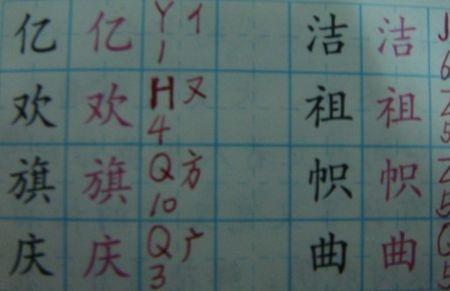 亿 亿 Y 亻 1 洁 洁 J 6
欢 欢 H 又 4 祖 祖 Z 5
旗 旗 Q 方 10 帜 帜 Z 5
庆 庆 Q 广 3 曲 曲 Q 5